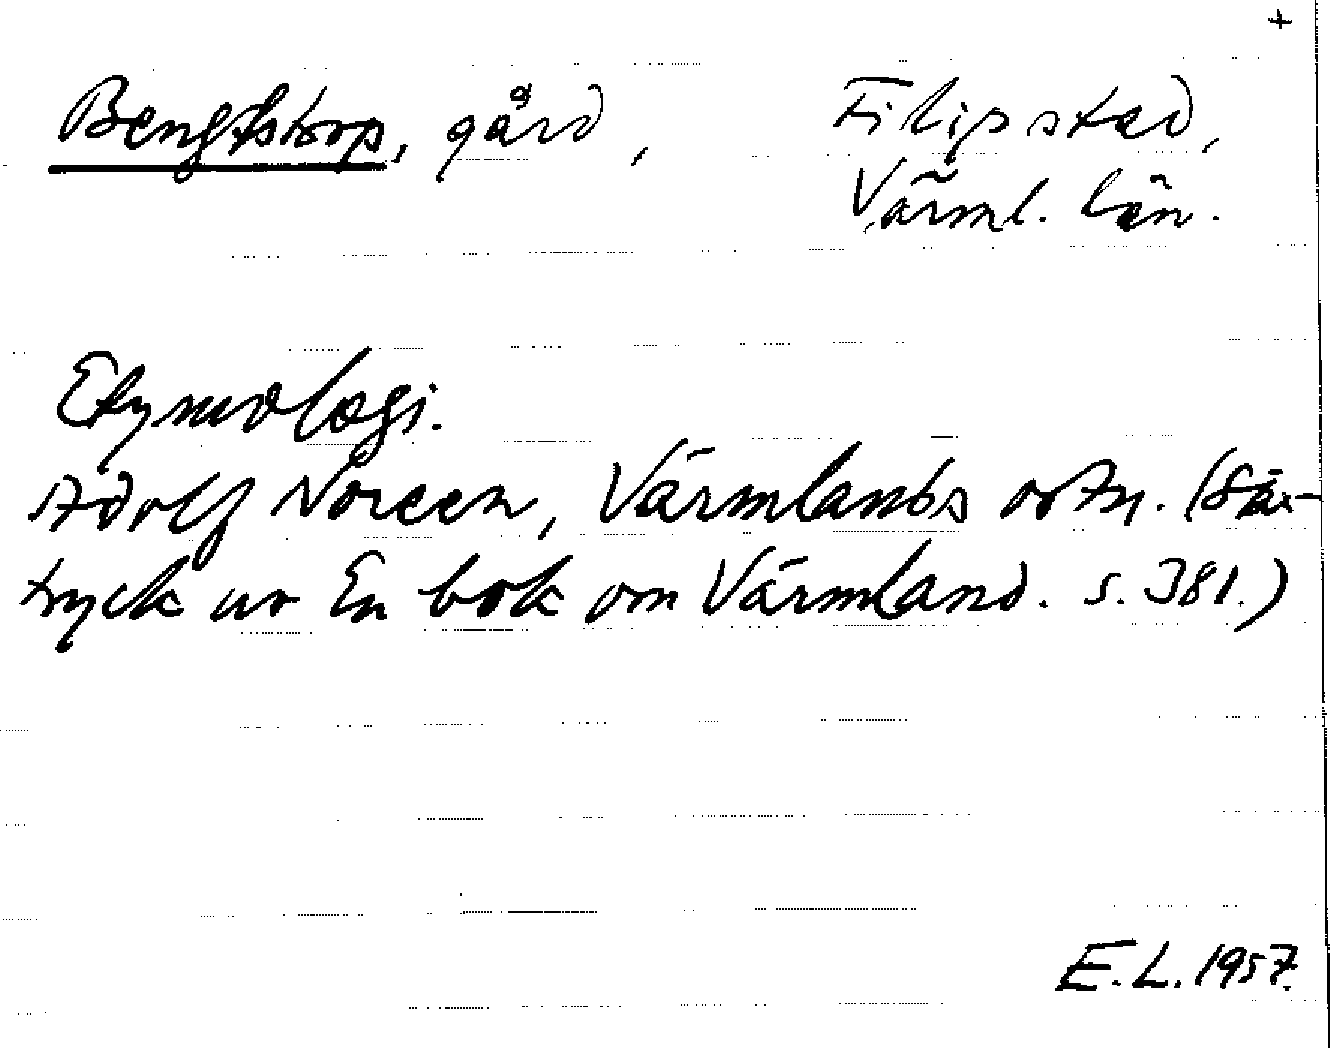 +
Bengtstorp, gård, Filipstad,
Värml. län.
Etymologi.
Adolf Noreen, Värmlands ortn. (Sär-
tryck ur En bok om Värmland. s. 381.)
E. L. 1957.